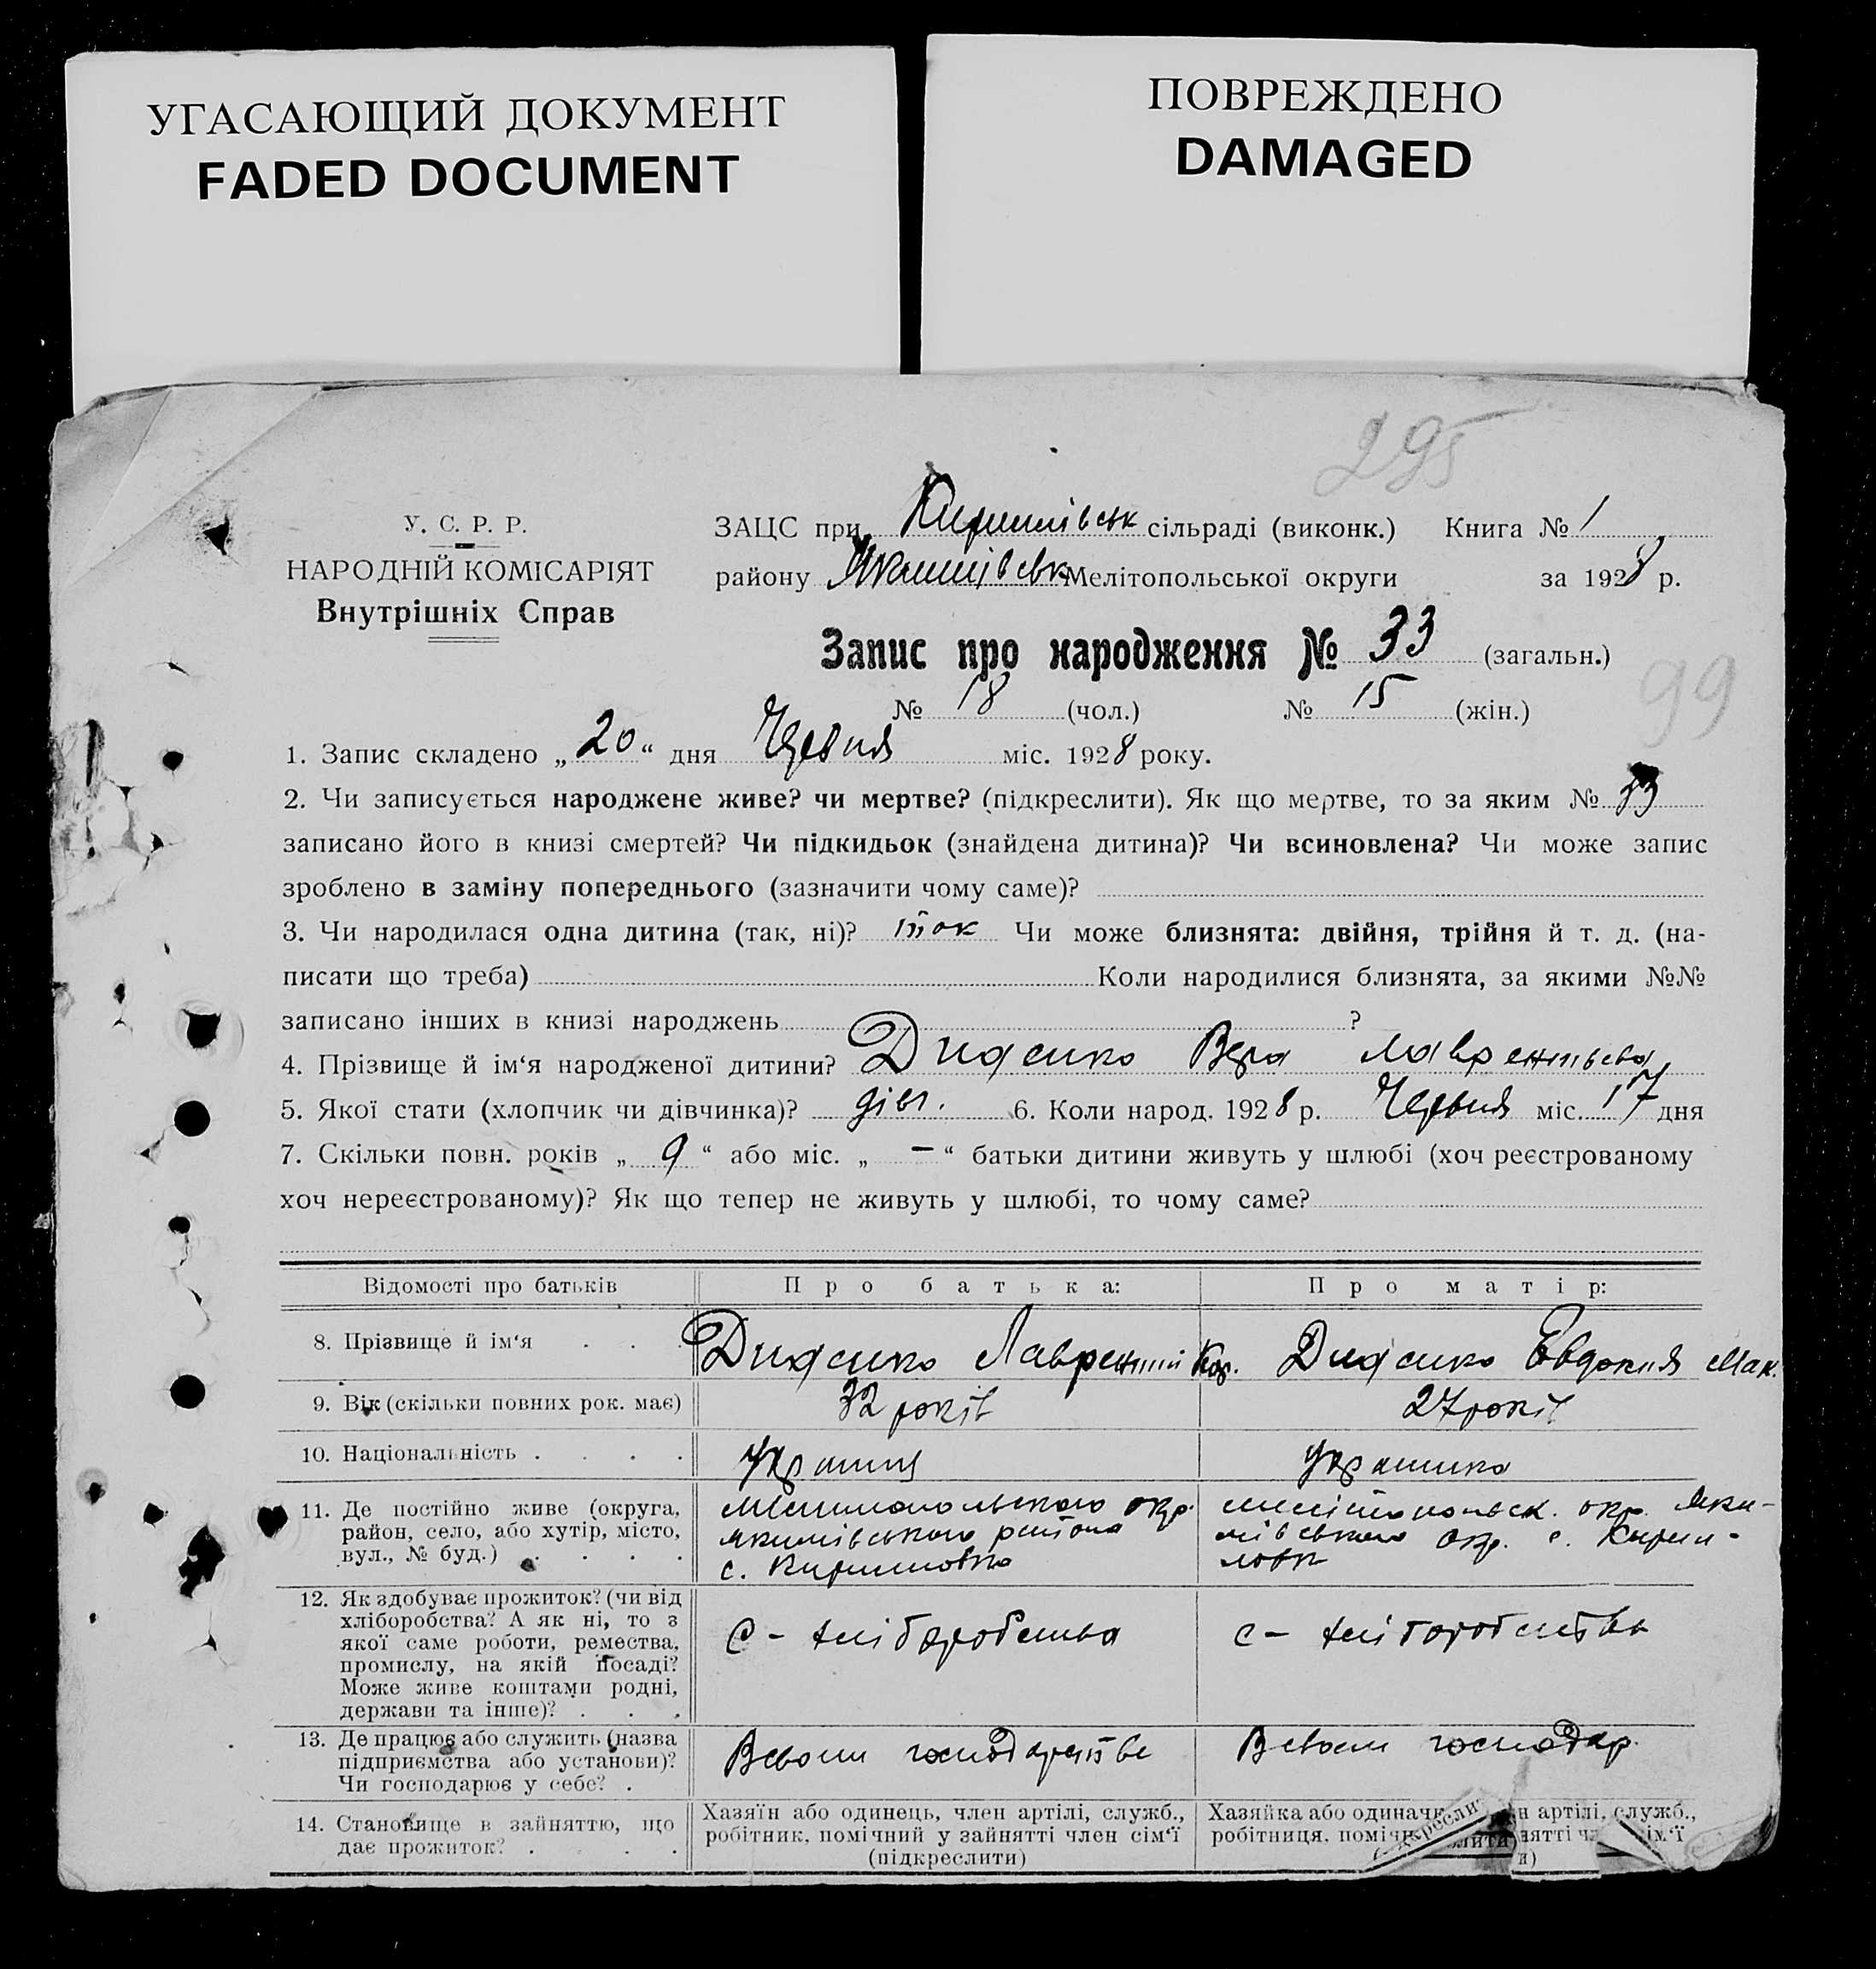 УГАСАЮЩИЙ ДОКУМЕНТ
FADED DOCUMENT
ПОВРЕЖДЕНО
DAMAGED
295
У. С. Р. Р.
НАРОДНІЙ КОМІСАРІЯТ
Внутрішніх Справ
ЗАЦС при Кирилівськ сільраді (виконк.) Книга № 1
району Якимівськ Мелітопольської округи за 1928 р.
Запис про народження № 33 (загальн.)
99
№ 18 (чол.) № 15 (жін.)
1. Запис складено „ 20 “ дня Червня міс. 1928 року.
2. Чи записується народжене живе? чи мертве? (підкреслити). Як що мертве, то за яким № 33
записано його в книзі смертей? Чи підкидьок (знайдена дитина)? Чи всиновлена? Чи може запис
зроблено в заміну попереднього (зазначити чому саме)?
3. Чи народилася одна дитина (так, ні)? так Чи може близнята: двійня, трійня й т. д. (на-
писати що треба) Коли народилися близнята, за якими №№
записано інших в книзі народжень ?
4. Прізвище й ім‘я народженої дитини? Диденко Вера Лаврентьева
5. Якої стати (хлопчик чи дівчинка)? дівч. 6. Коли народ. 1928 р. Червня міс. 17 дня
7. Скільки повн. років „ 9 “ або міс. „ — “ батьки дитини живуть у шлюбі (хоч реєстрованому
хоч нереєстрованому)? Як що тепер не живуть у шлюбі, то чому саме?
Відомості про батьків Про батька: Про матір:
8. Прізвище й ім‘я . . . Диденко Лаврентий Диденко Евдокия Мак.
9. Вік (скільки повних рок. має) 32 років 27 років
10. Національність . . . . Українц Українка
11. Де постійно живе (округа,
район, село, або хутір, місто,
вул., № буд.) . . . .
Мелітопольского окр.
Якимівського района
с. Кирилловка
Мелітопольск. окр. Яки-
мівського окр. с. Кирил-
ловк
12. Як здобуває прожиток? (чи від
хліборобства? А як ні, то з
якої саме роботи, ремества,
промислу, на якій посаді?
Може живе коштами родні,
держави та інше)? . . .
с - хліборобства
с - хліборобства
13. Де працює або служить (назва
підприємства або установи)?
Чи господарює у себе? .
Всвоем господарстве
Всвоем господар.
14. Становище в зайняттю, що
дає прожиток? . . . .
Хазяїн або одинець, член артілі, служб.,
робітник, помічний у зайнятті член сім‘ї
(підкреслити)
Хазяйка або одиначк н артілі, служб.,
робітниця, поміч нятті ч ім‘ї